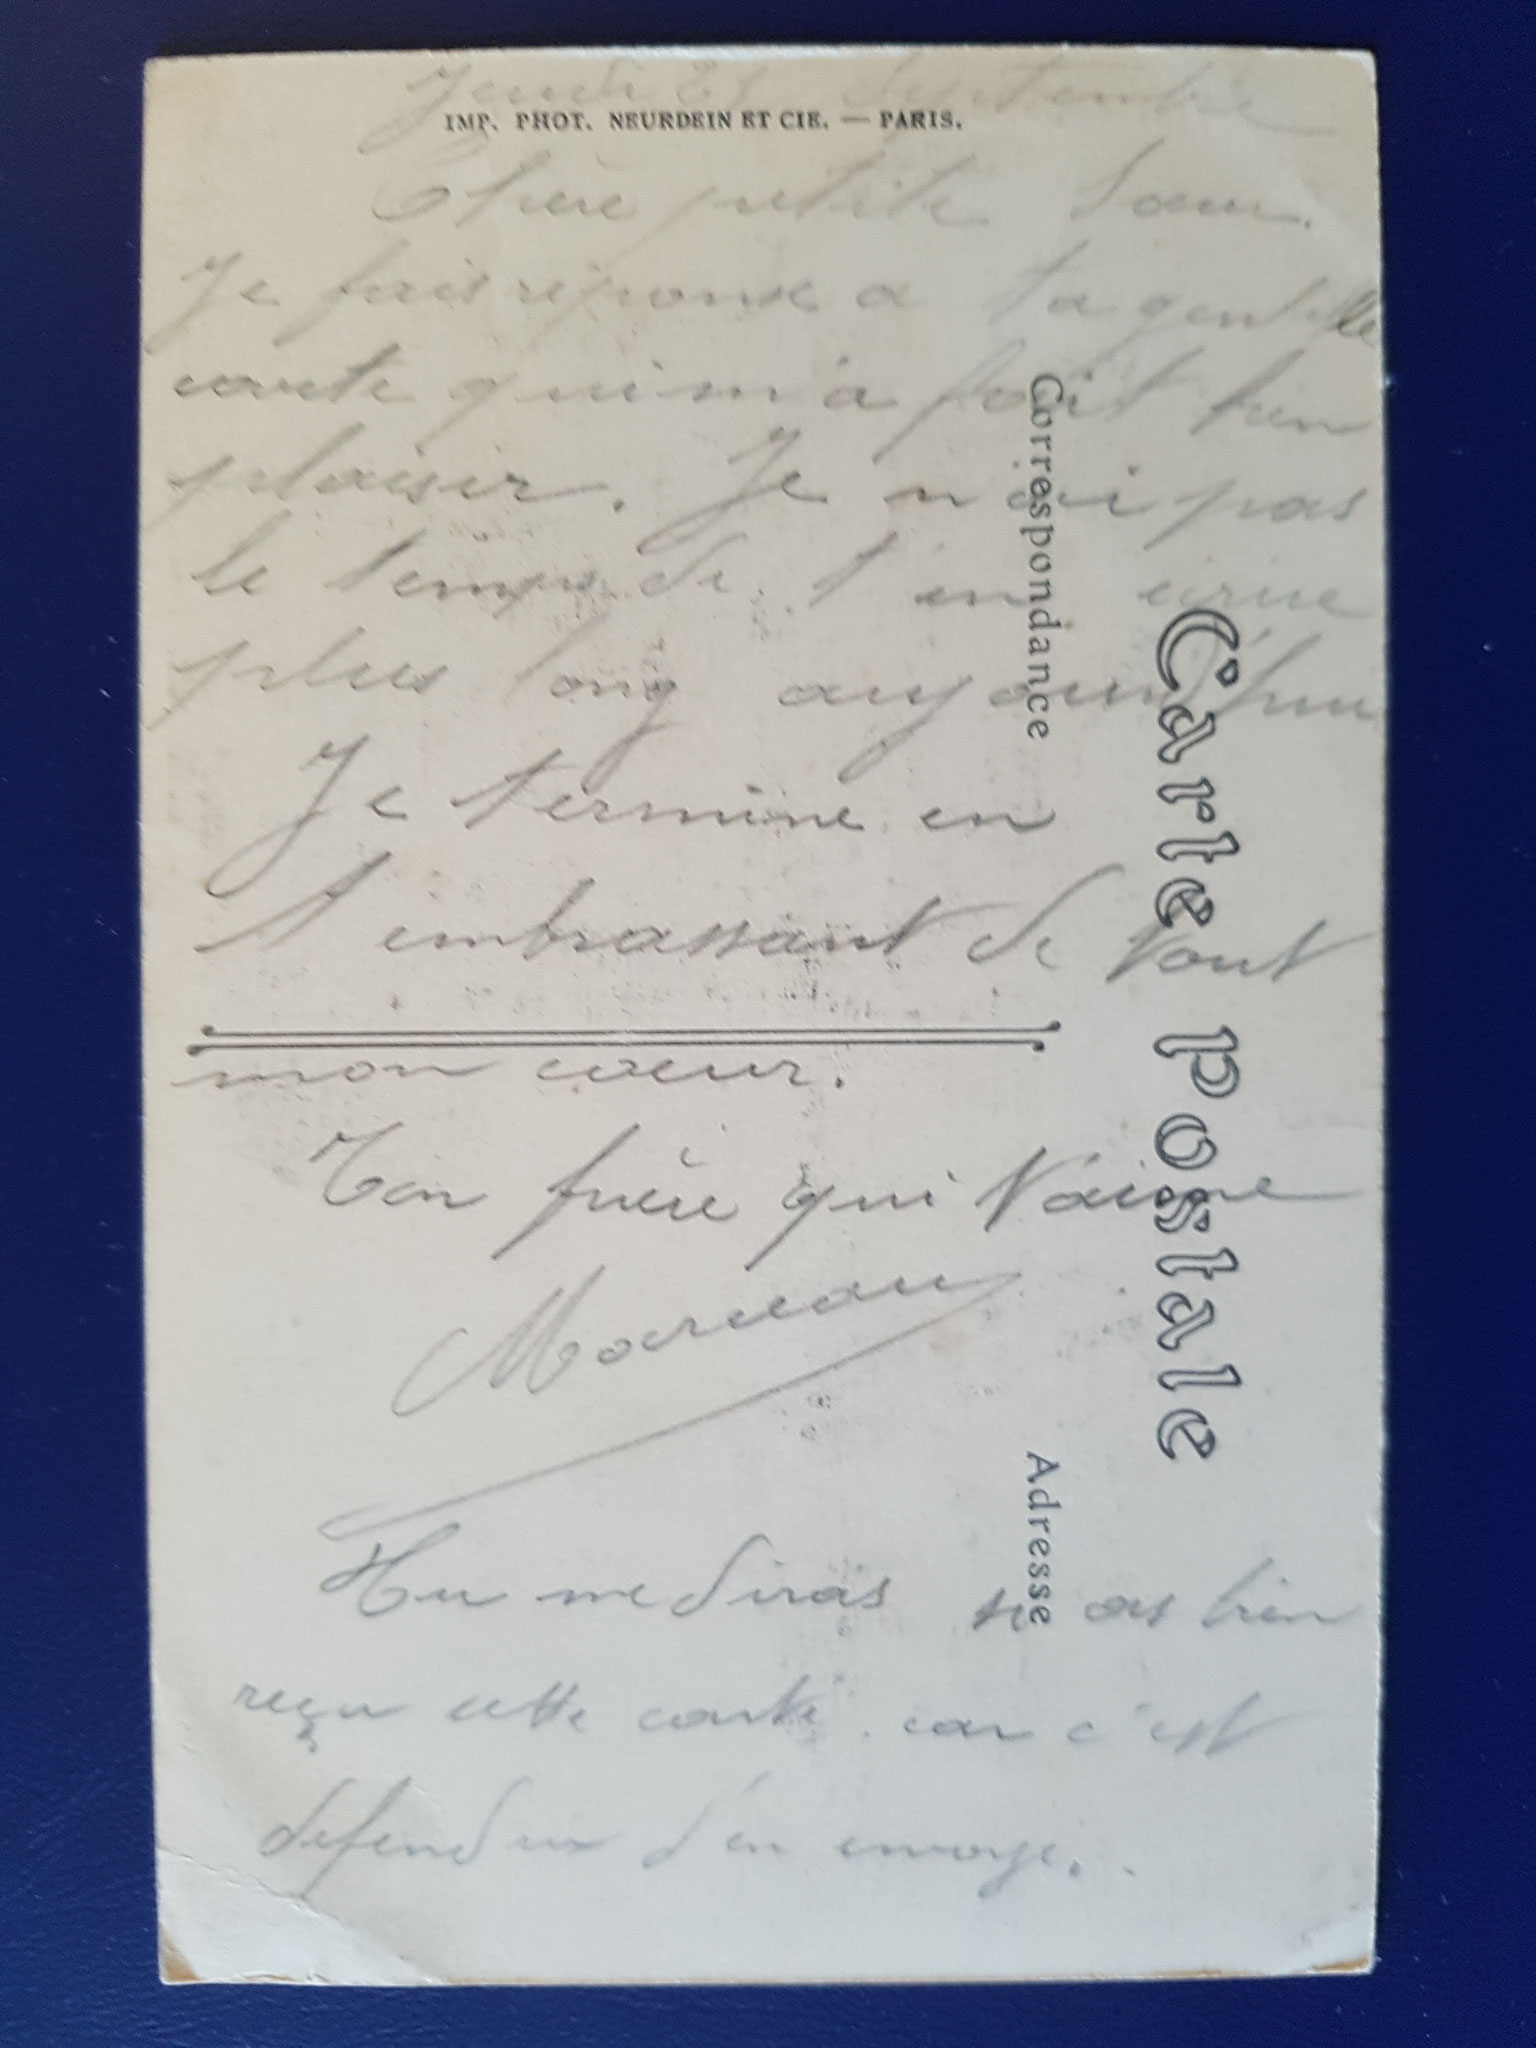 Jeudi 21 Septembre
IMP. PHOT. NEURDEIN ET CIE. — PARIS.
Chère petite Sœur.
Je fais réponse a ta gentille
carte qui m'a fait bien
plaisir. Je n'ai pas
le temps de t'en écrire
plus long aujourd'hui
Je termine en
t'embrassant de tout
mon cœur.
Ton frère qui t'aime
Marceau
Tu me diras si as bien
reçu cette carte car c'est
défendux d'en envoye.
Correspondance
Carte Postale
Adresse